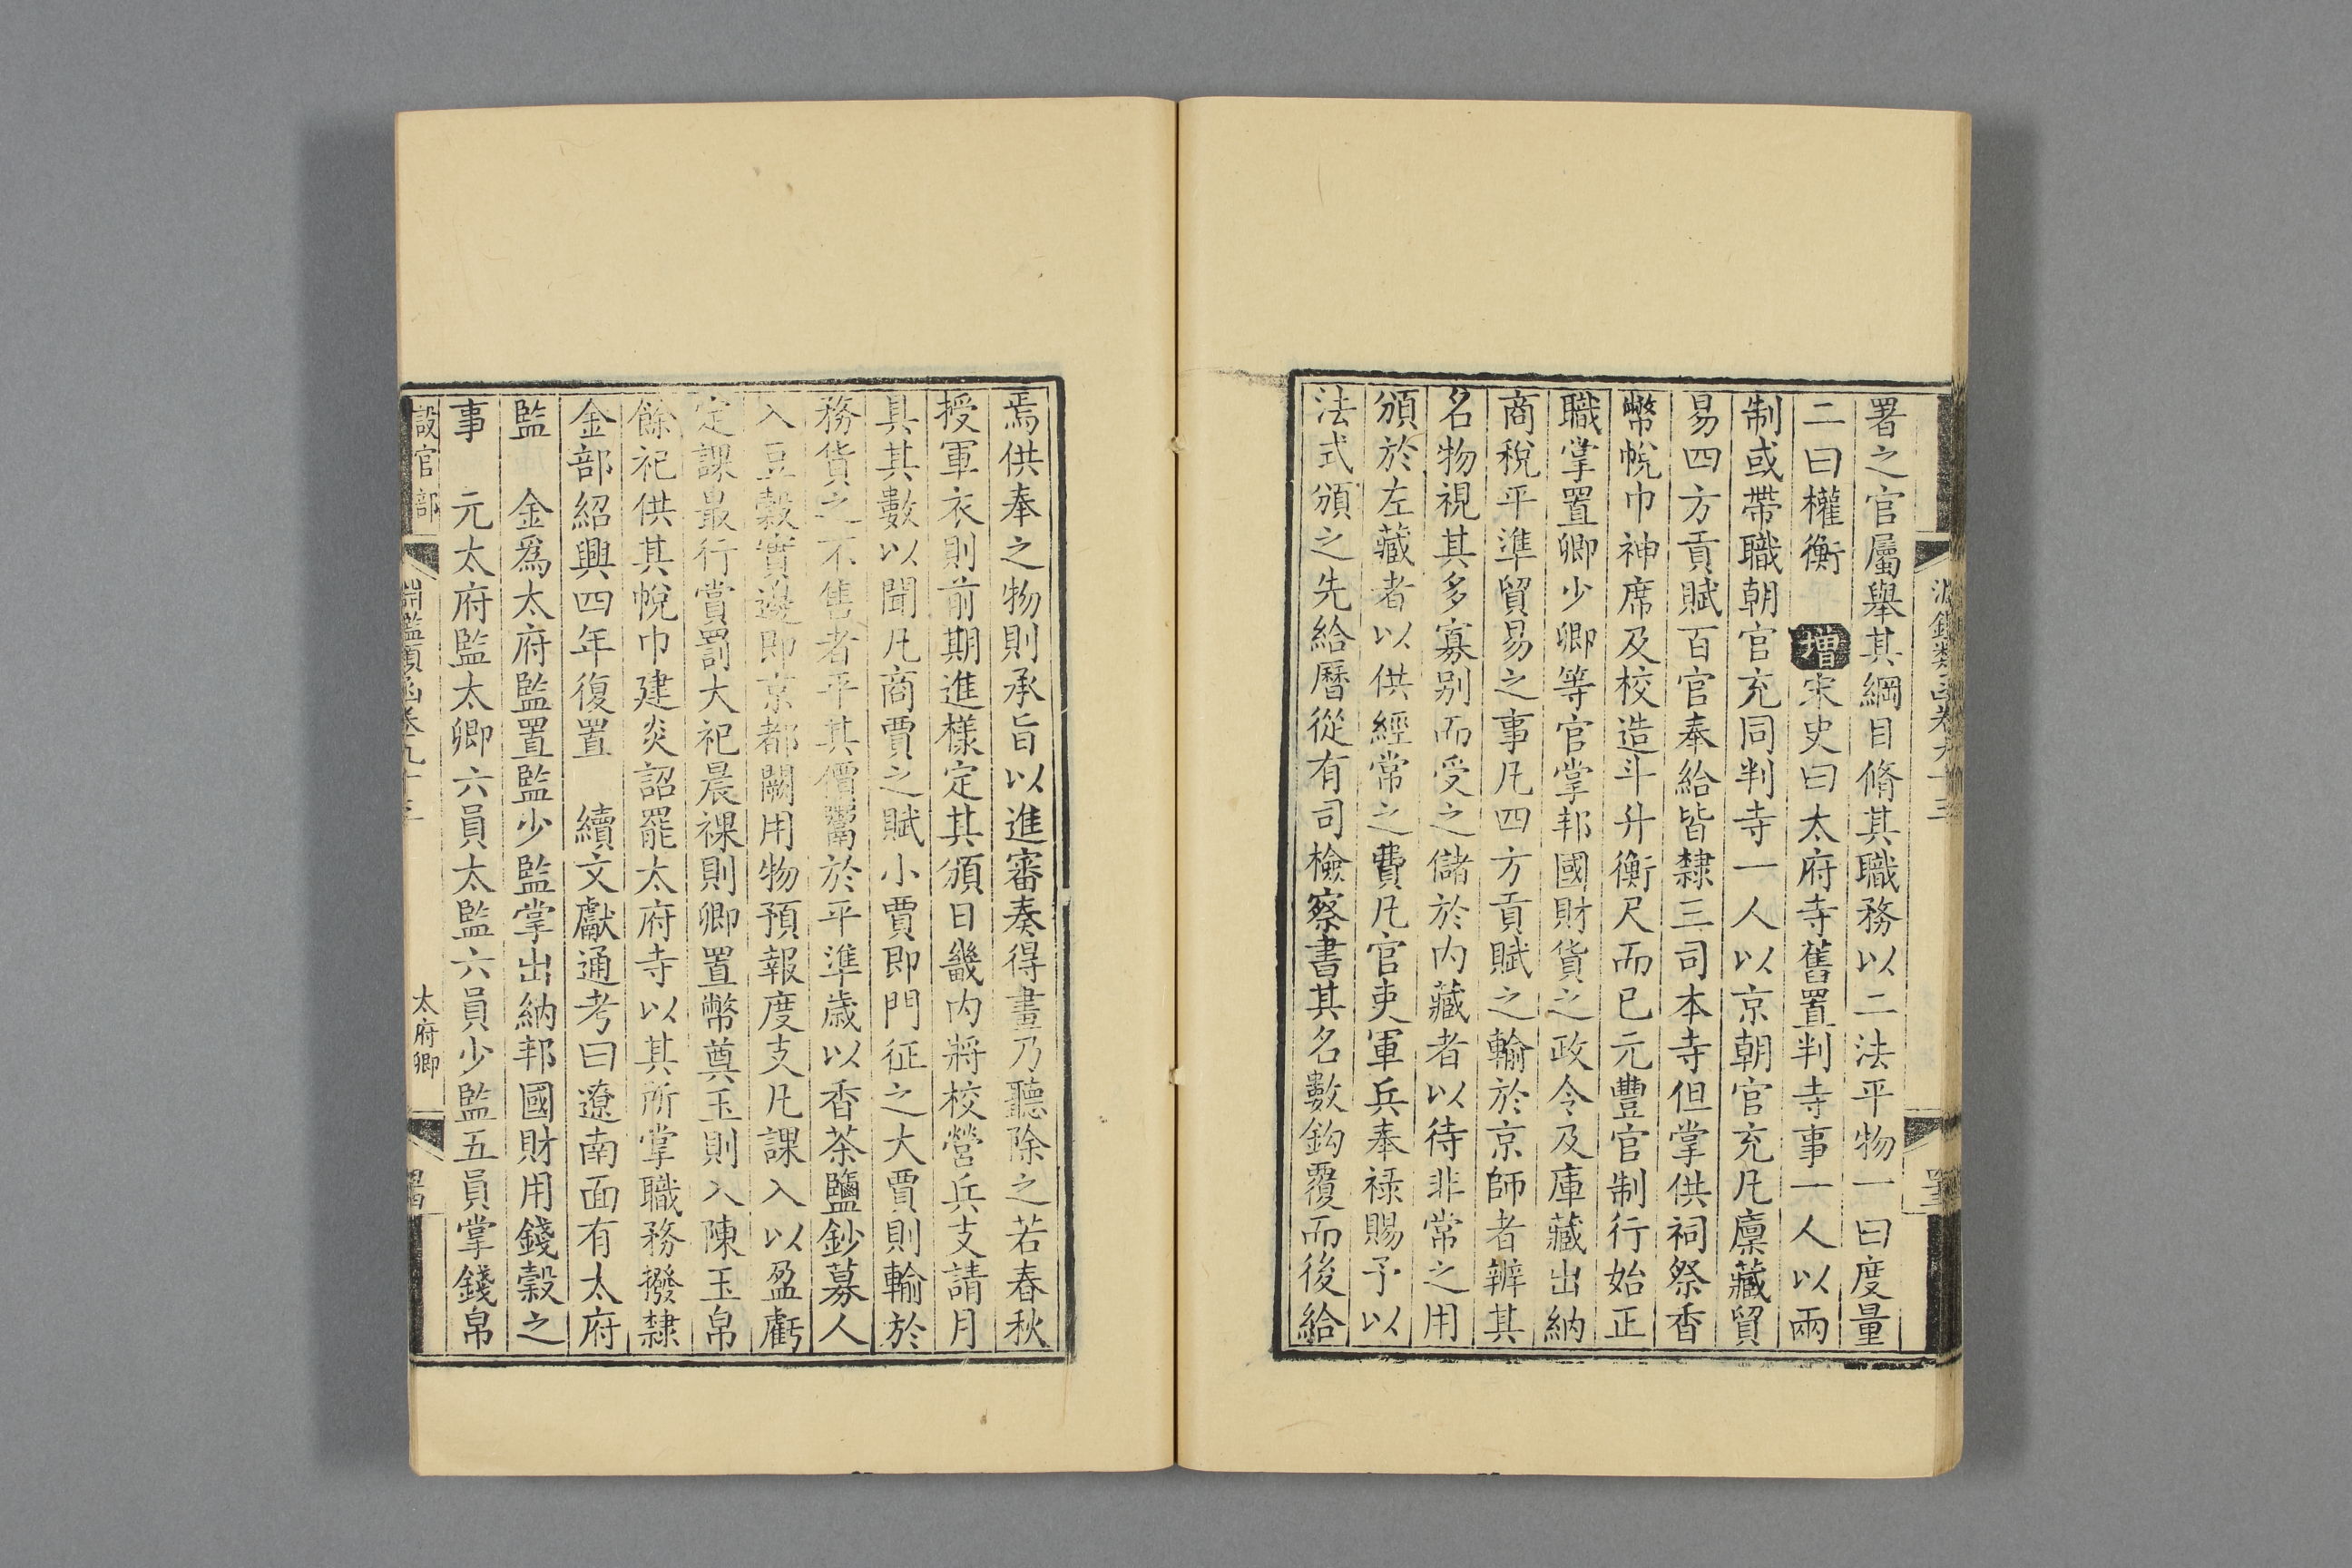 署之官屬舉其綱目脩其職務以二法平物一曰度量
二曰權衡 增宋史曰太府寺舊置判寺事一人以兩
制或帶職朝官充同判寺一人以京朝官充凡廩藏貿
易四方貢賦百官奉給皆隸三司本寺但掌供祠祭香
幣帨巾神席及校造斗升衡尺而已元豐官制行始正
職掌置卿少卿等官掌邦國財貨之政令及庫藏出納
商稅平準貿易之事凡四方貢賦之輸於京師者辨其
名物視其多寡别而受之儲於内藏者以待非常之用
頒於左藏者以供經常之費凡官吏軍兵奉祿賜予以
法式頒之先給曆從有司檢察書其名數鈎覆而後給
焉供奉之物則承旨以進審奏得畫乃聽除之若春秋
授軍衣則前期進樣定其頒日畿内將校營兵支請月
具其數以聞凡商賈之賦小賈即門征之大賈則輸於
務貨之不售者平其價鬻於平準歲以香茶鹽鈔募人
入豆穀實邊即京都闕用物預報度支凡課入以盈虧
定課最行賞罰大祀晨祼則卿置幣奠玉則入陳玉帛
餘祀供其帨巾建炎詔罷太府寺以其所掌職務撥隸
金部紹興四年復置 續文獻通考曰遼南面有太府
監 金爲太府監置監少監掌出納邦國財用錢穀之
事 元太府監太卿六員太監六員少監五員掌錢帛
設官部 淵鑑類函卷九十三 太府卿